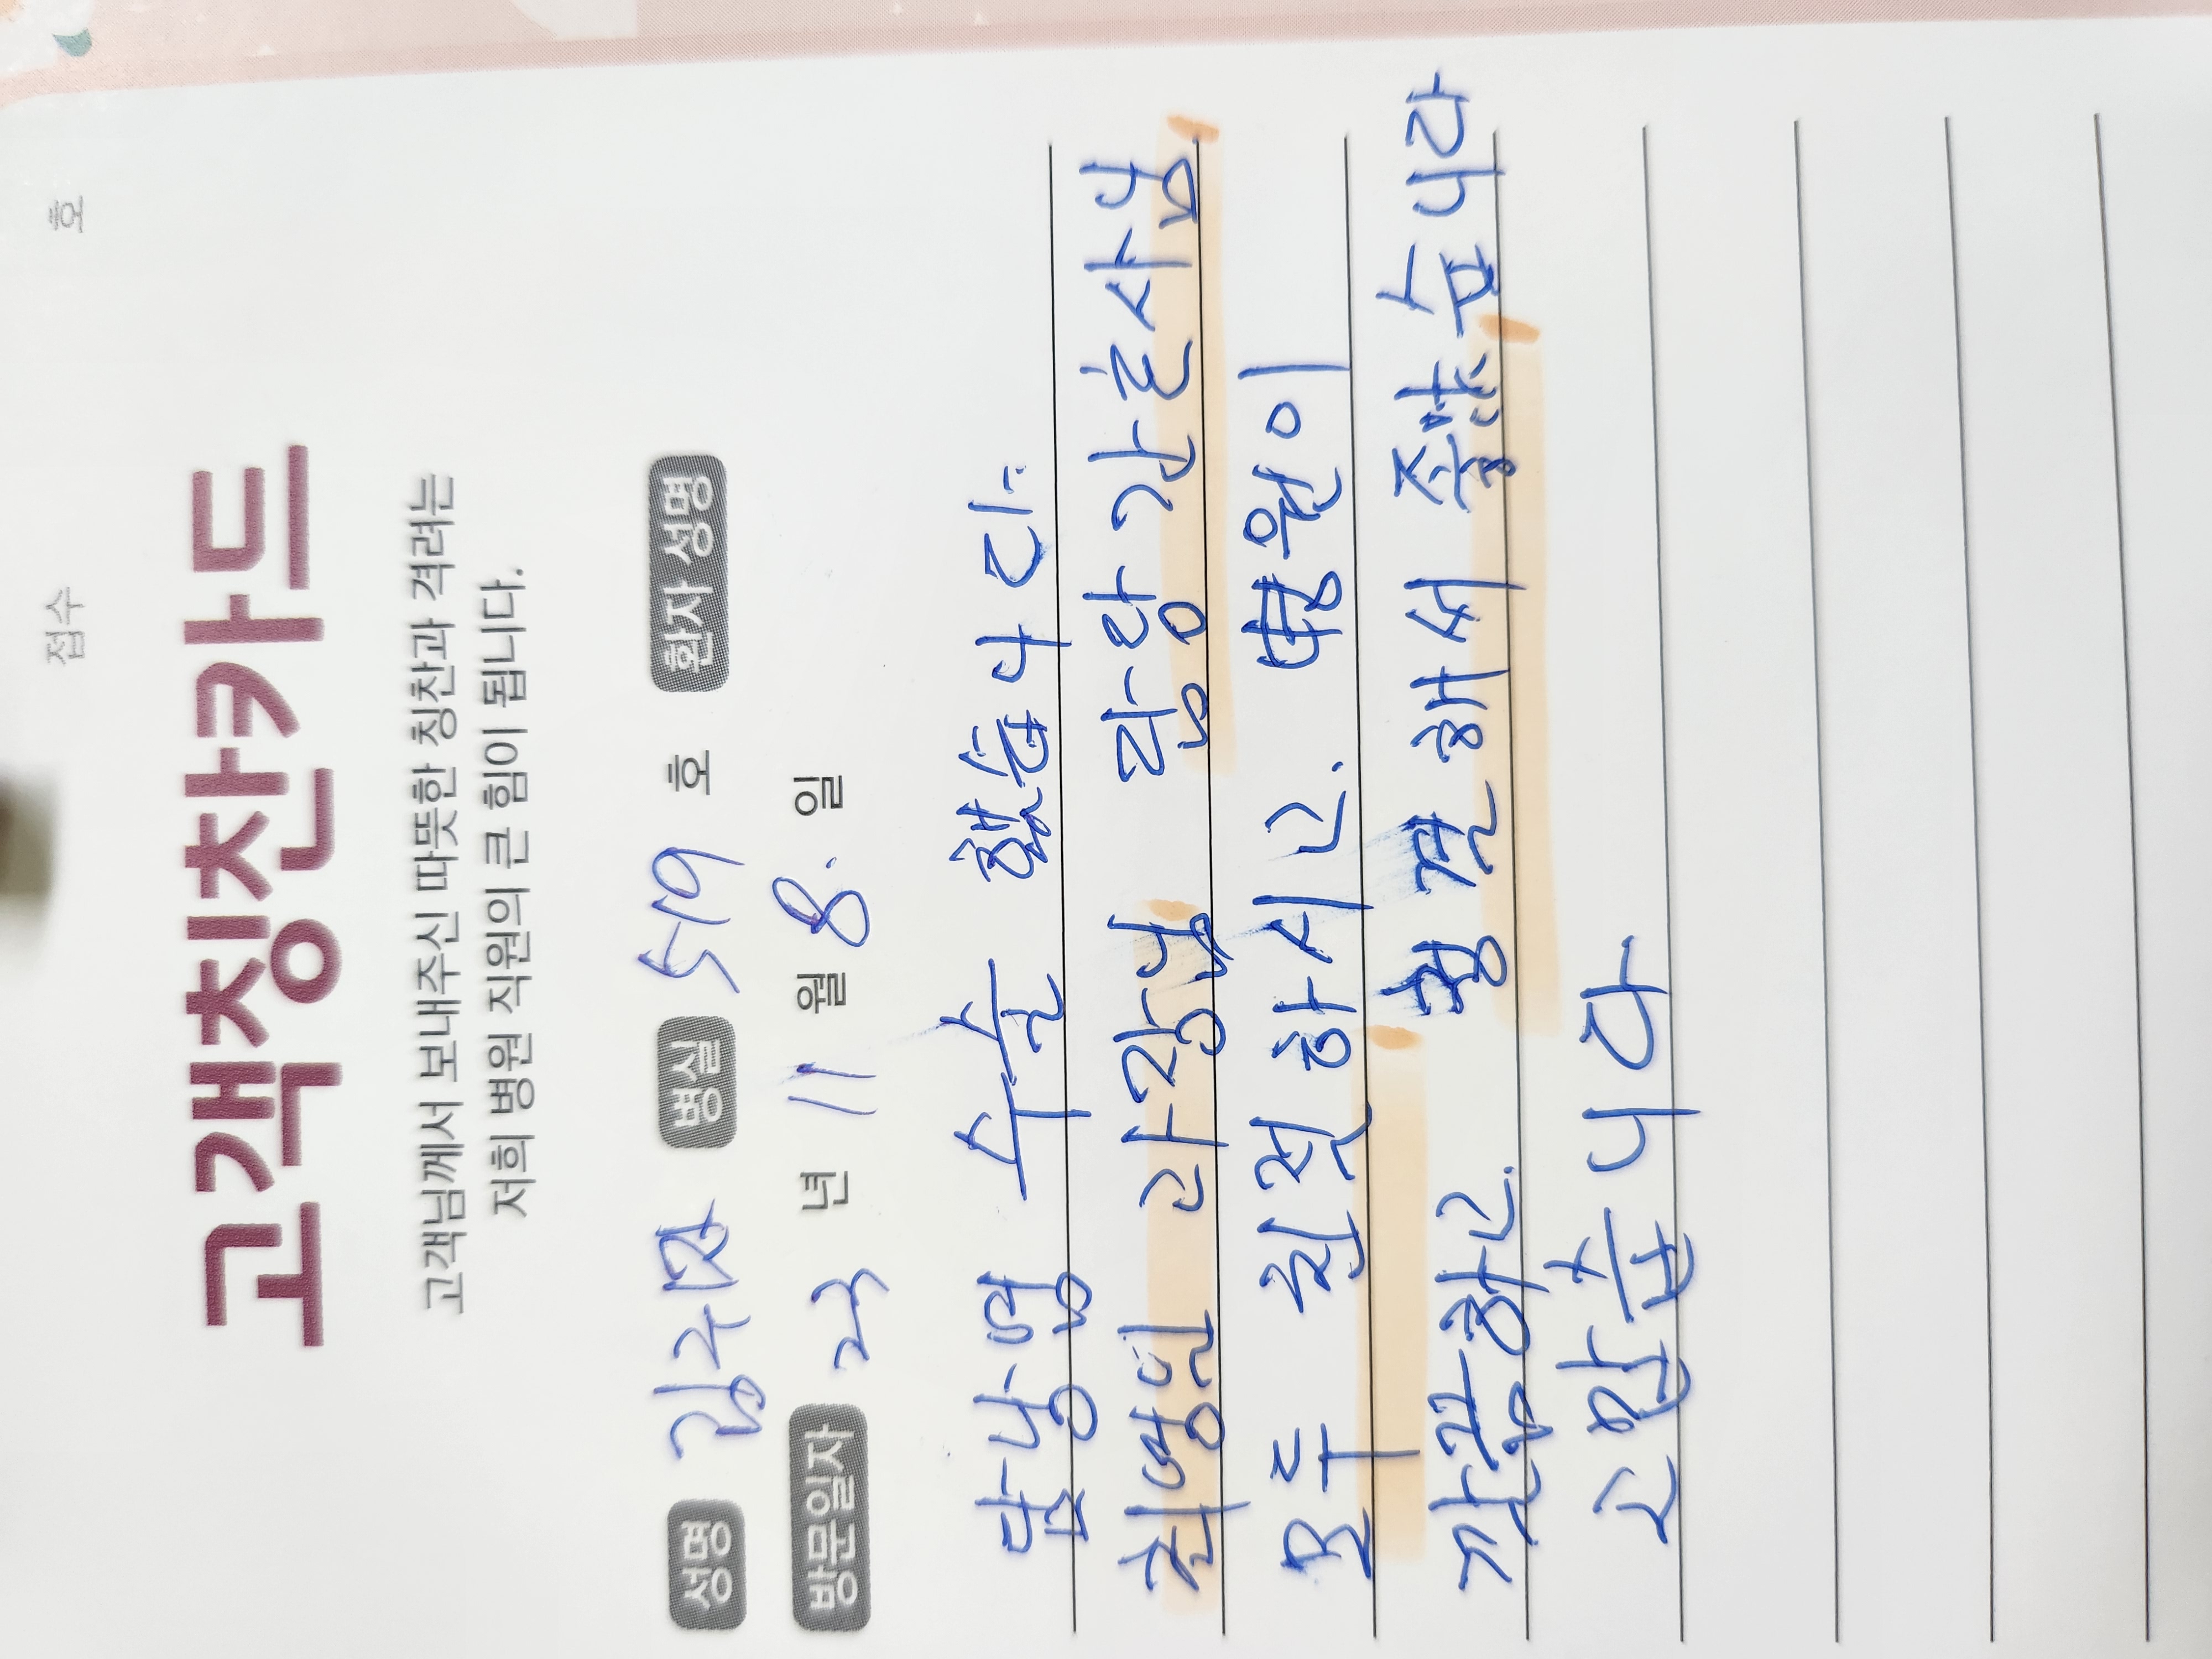 접수 호
고객칭찬카드
고객님께서 보내주신 따뜻한 칭찬과 격려는
저희 병원 직원의 큰 힘이 됩니다.
성명 병실 519 호 환자 성명
방문일자 23 년 11 월 8. 일
담낭염 수술 했습니다.
최영인 과장님 담당 간호사님
모두 친절하시고. 병원이
깔끔하고. 청결해서 좋았습니다
고맙습니다